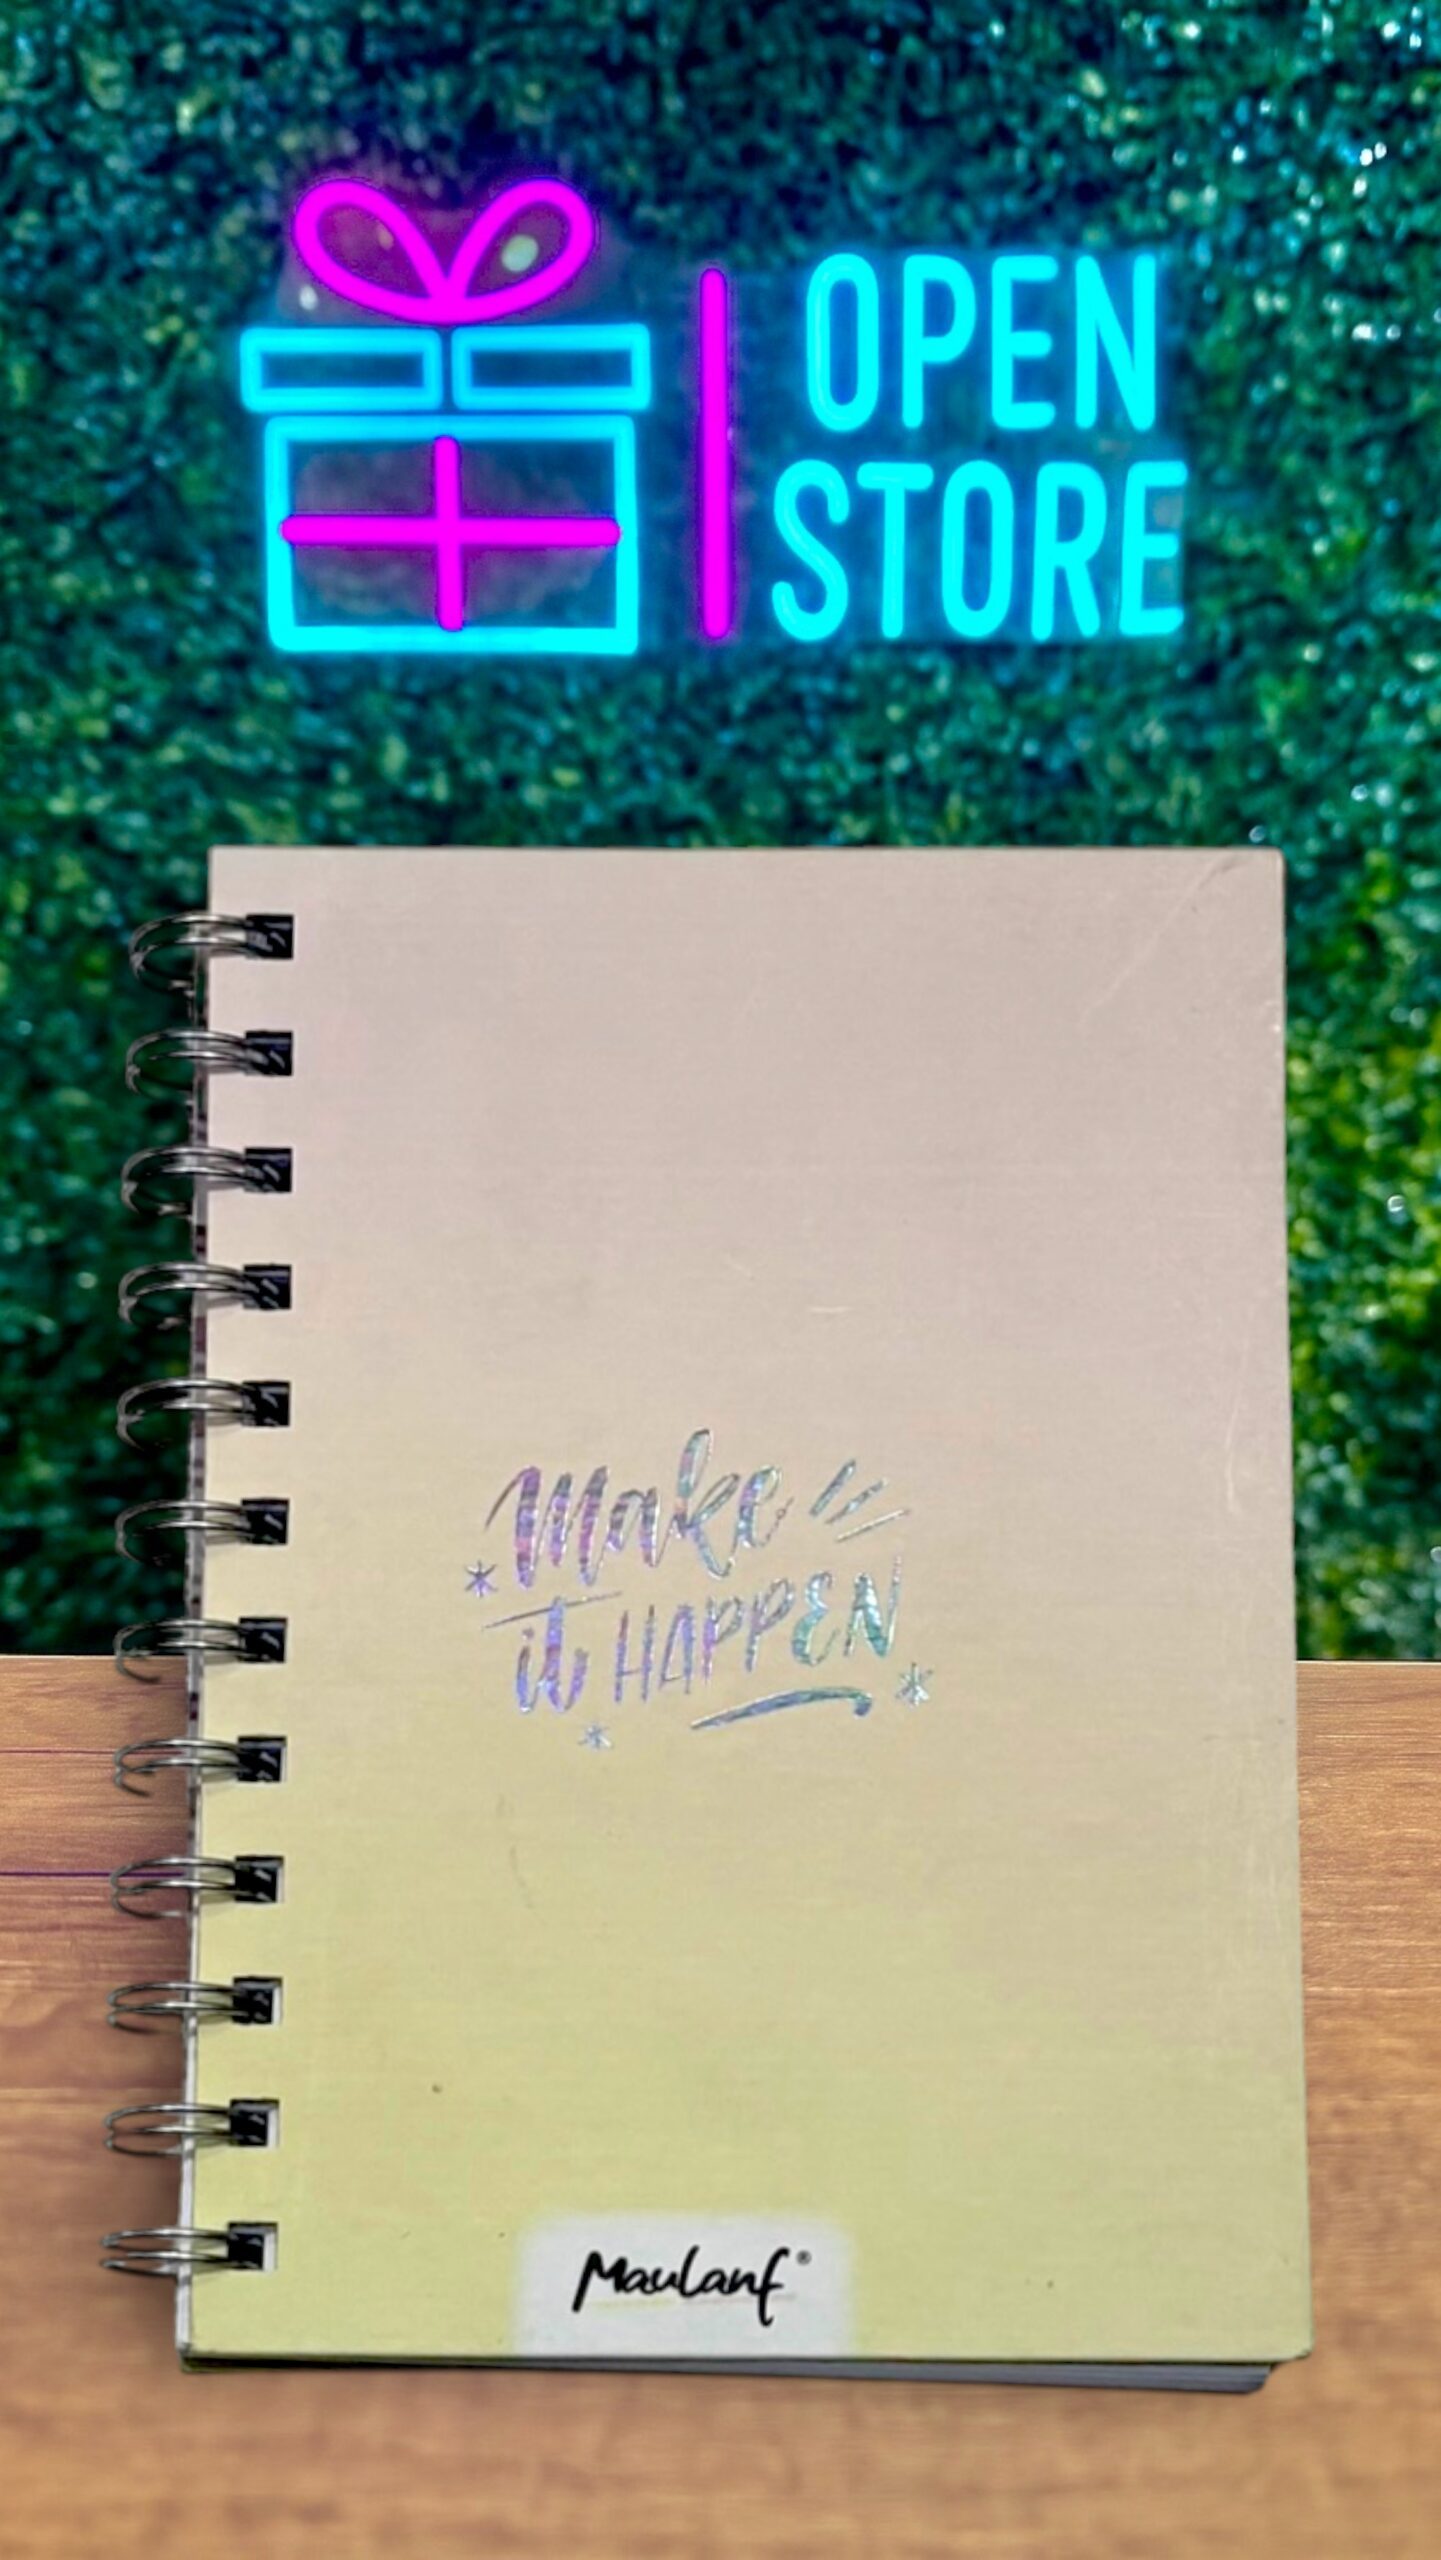 OPEN
STORE
Make
it HAPPEN
Maulanf®